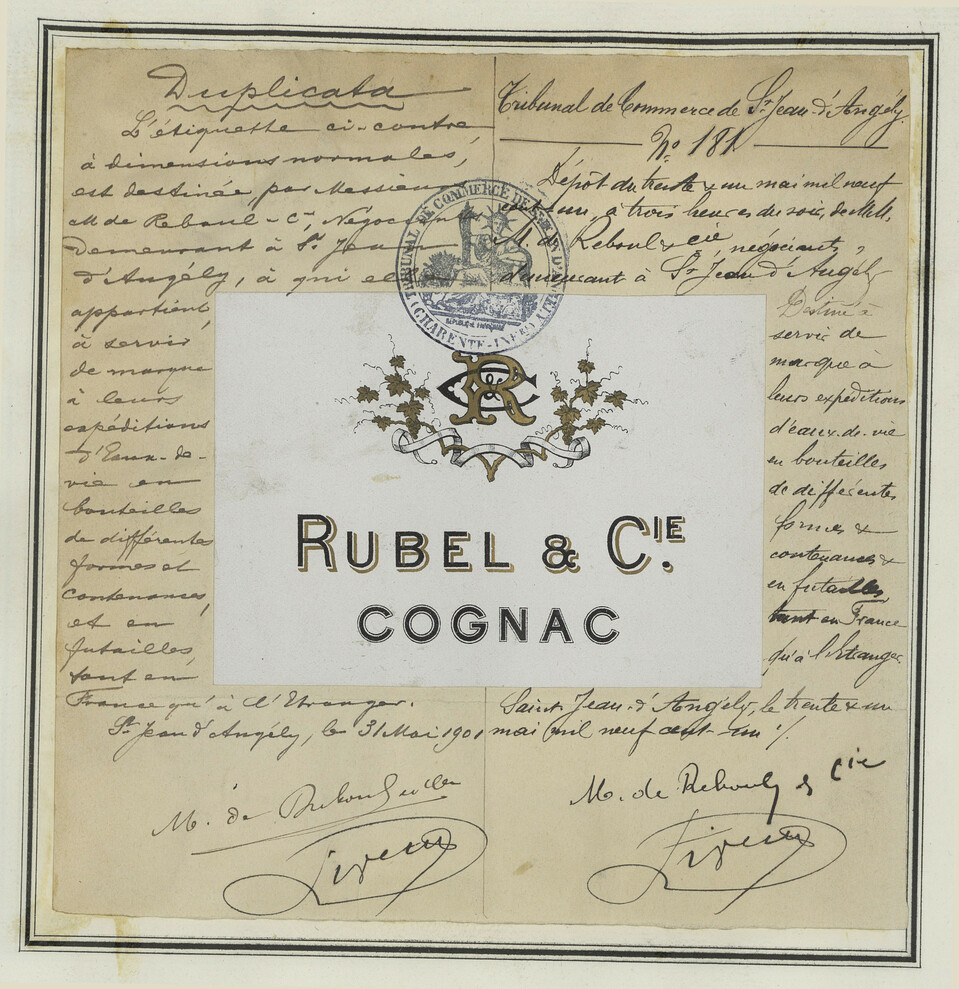 Duplicata
L'étiquette ci-contre
à dimensions normales,
est destinée, par Messieu
M de Reboul - Cie, Négociants
demeurant à St Jean
d'Angély, à qui elle
appartient,
à servir
de marque
à leurs
expéditions
d'Eaux-de-
vie en
bouteilles
de différentes
formes et
contenances,
et en
futailles,
tant en
France qu'à l'Etranger.
St Jean d'Angély, le 31 Mai 1901
M. de Reboul
Tribunal de Commerce de St Jean-d'Angély.
No 181
Dépôt du trente & un mai mil neuf
cent un, à trois heures du soir, de MM.
M. de Reboul & cie négociants,
demeurant à St Jean d'Angély
Destiné à
servir de
marque à
leurs expéditions
d'eaux-de-vie
en bouteilles
de différentes
formes &
contenances &
en futailles
tant en France
qu'à l'Etranger
Saint-Jean-d'Angély, le trente & un
mai mil neuf cent-un %.
M. de Reboul & Cie
TRIBUNAL DE COMMERCE DE ST JEAN D'ANGELY
(CHARENTE-INFRE)
REPUBLIQUE FRANÇAISE
R & C
RUBEL & CIE.
COGNAC